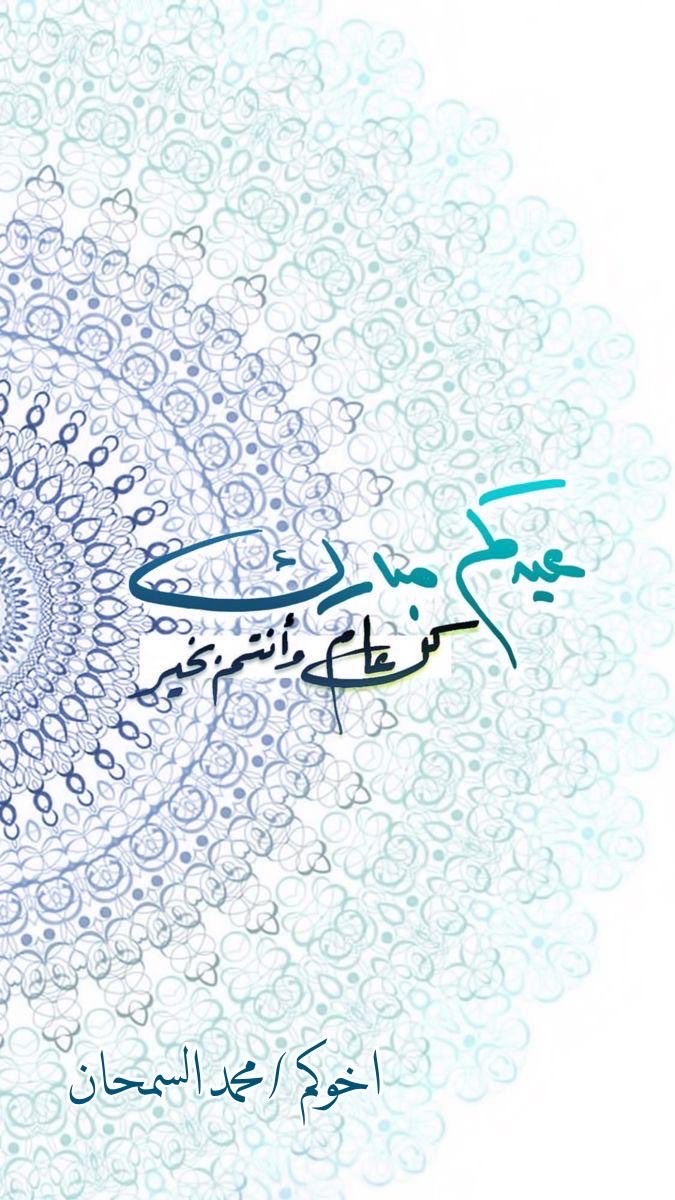 عيدكم مبارك
كل عام وأنتم بخير
اخوكم / محمد السمحان